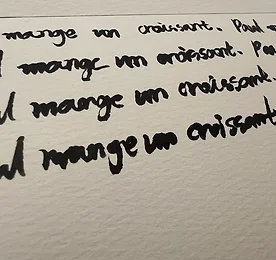 mange un croissant. Paul
mange un croissant. Pau
ul mange un croissant.
ul mange un croissant